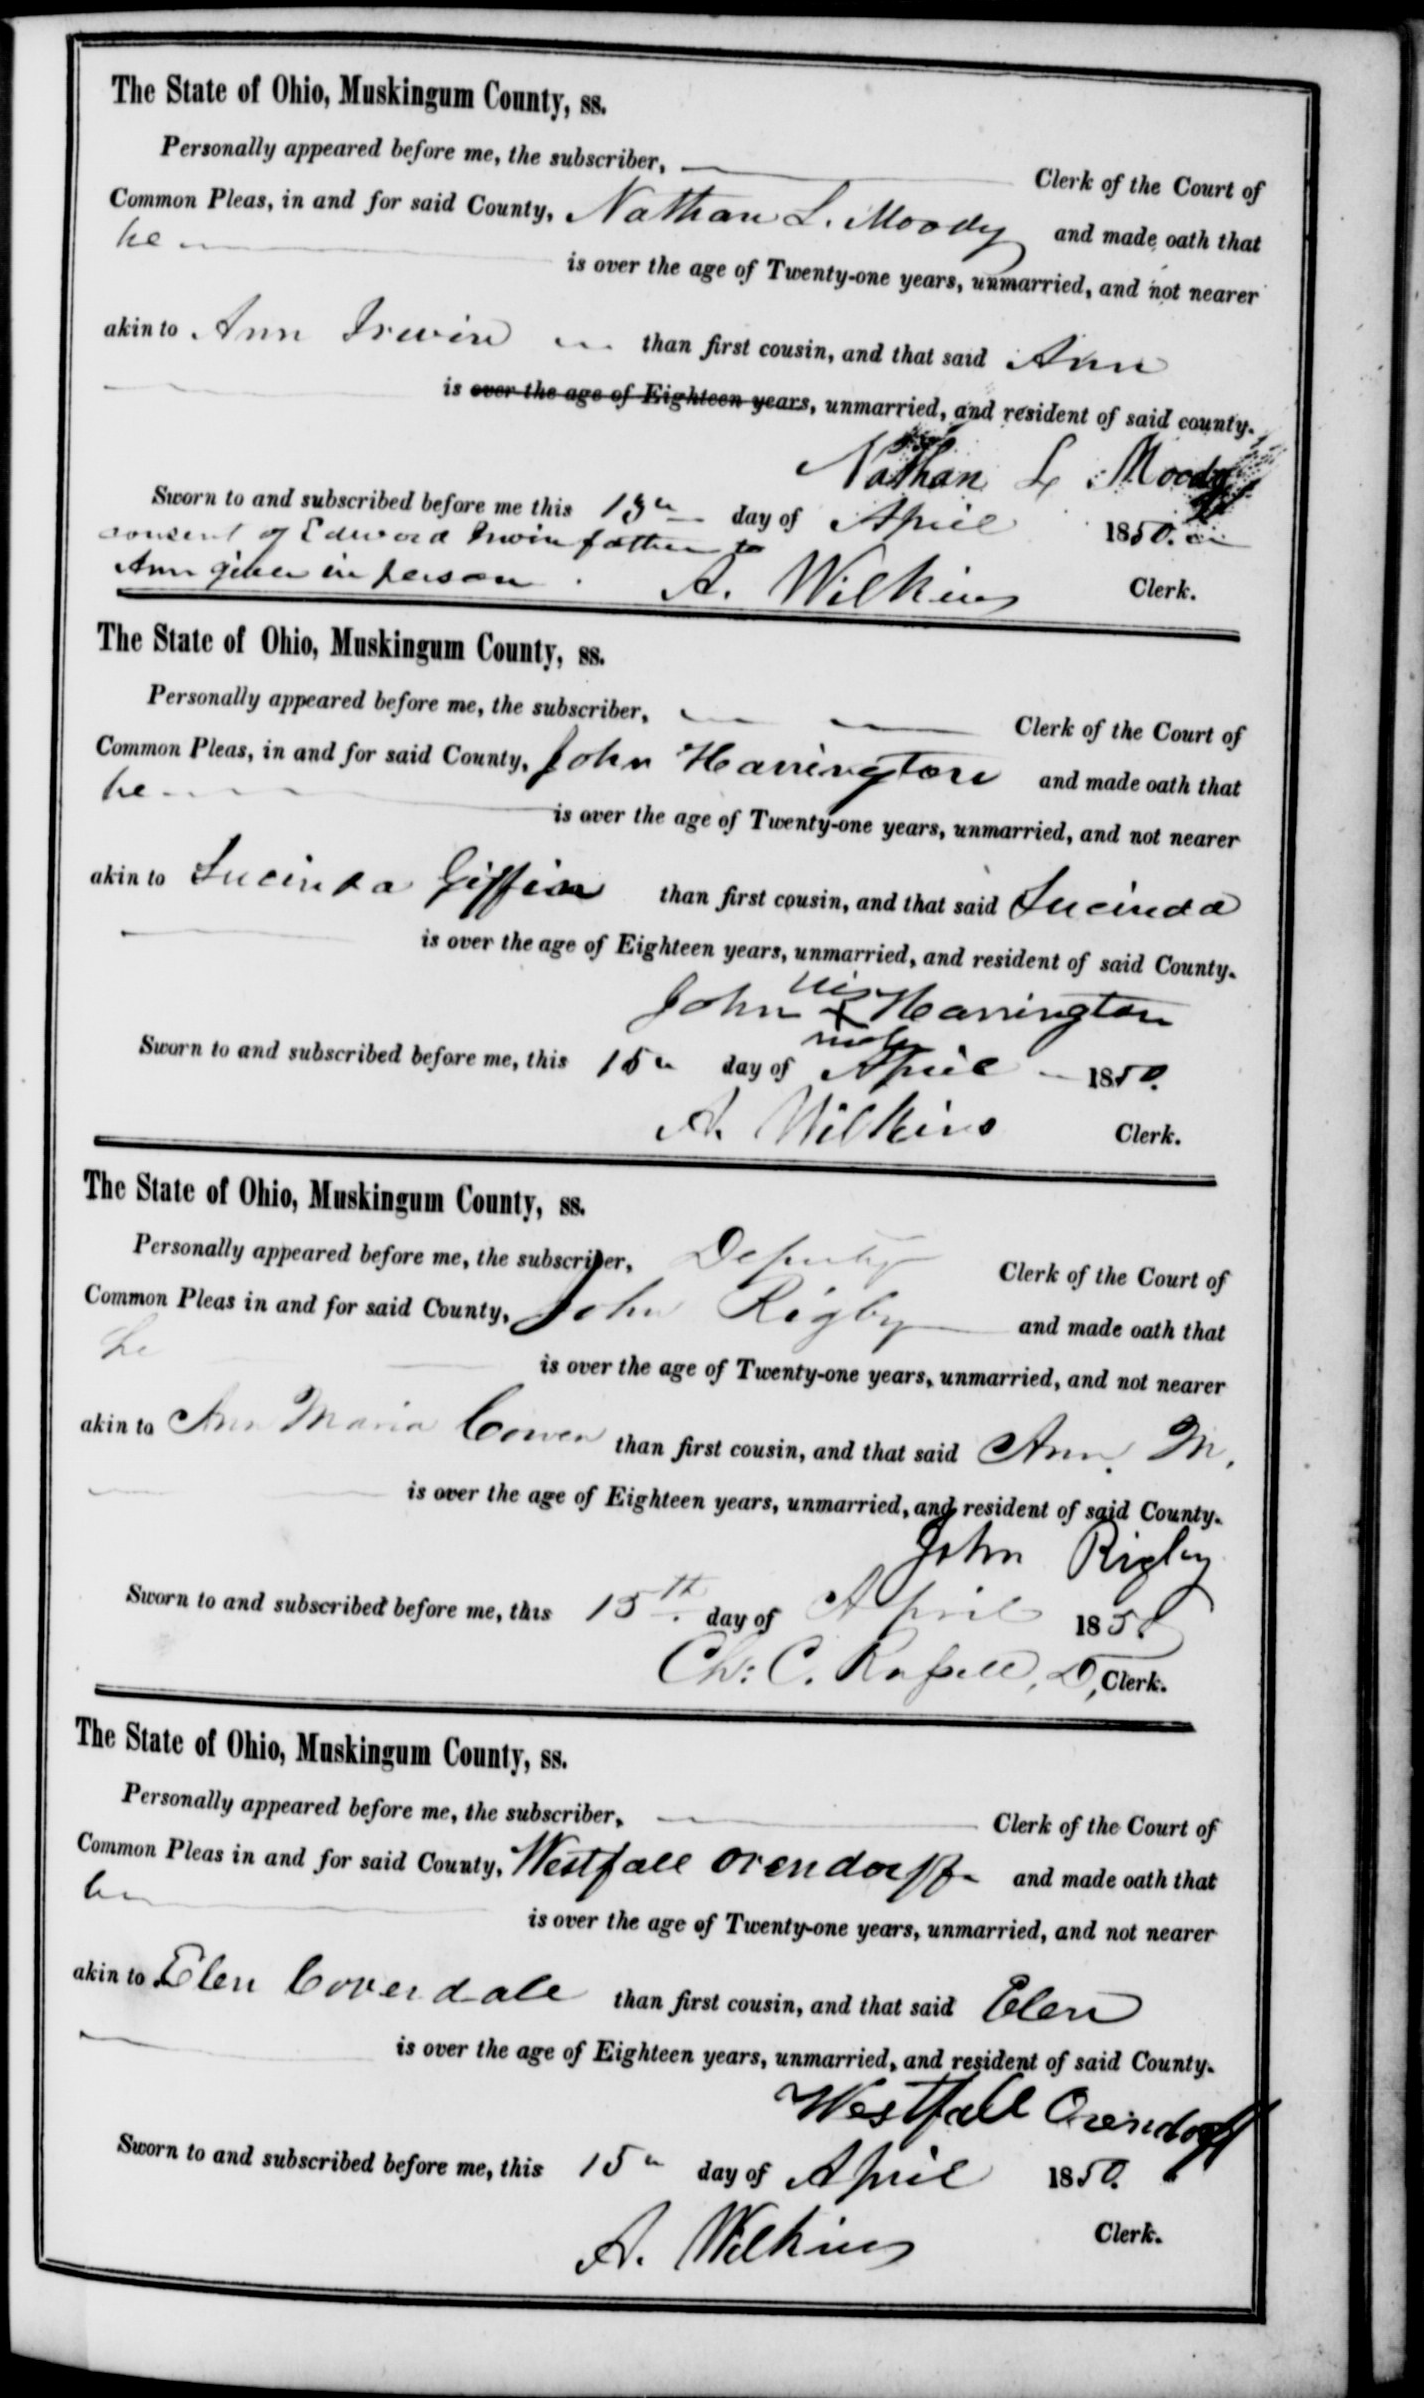 The State of Ohio, Muskingum County, ss.
Personally appeared before me, the subscriber, Clerk of the Court of
Common Pleas, in and for said County, Nathan L. Moody and made oath that
he is over the age of Twenty-one years, unmarried, and not nearer
akin to Ann Irwin than first cousin, and that said Ann
is over the age of Eighteen years, unmarried, and resident of said county.
Nathan L Moody
Sworn to and subscribed before me this 13th day of April 1850.
consent of Edward Irwin father to
Ann given in person.
A. Wilkins Clerk.
The State of Ohio, Muskingum County, ss.
Personally appeared before me, the subscriber, Clerk of the Court of
Common Pleas, in and for said County, John Harrington and made oath that
he is over the age of Twenty-one years, unmarried, and not nearer
akin to Lucinda Giffin than first cousin, and that said Lucinda
is over the age of Eighteen years, unmarried, and resident of said County.
his
John + Harrington
mark
Sworn to and subscribed before me, this 15th day of April 1850.
A. Wilkins Clerk.
The State of Ohio, Muskingum County, ss.
Personally appeared before me, the subscriber, Deputy Clerk of the Court of
Common Pleas in and for said County, John Rigby and made oath that
he is over the age of Twenty-one years, unmarried, and not nearer
akin to Ann Maria Cowen than first cousin, and that said Ann M.
is over the age of Eighteen years, unmarried, and resident of said County.
John Rigby
Sworn to and subscribed before me, this 15th day of April 1850
Ch: C. Russell, D, Clerk.
The State of Ohio, Muskingum County, ss.
Personally appeared before me, the subscriber, Clerk of the Court of
Common Pleas in and for said County, Westfall Orendorff and made oath that
he is over the age of Twenty-one years, unmarried, and not nearer
akin to Elen Coverdale than first cousin, and that said Elen
is over the age of Eighteen years, unmarried, and resident of said County.
Westfall Orendorff
Sworn to and subscribed before me, this 15th day of April 1850.
A. Wilkins Clerk.